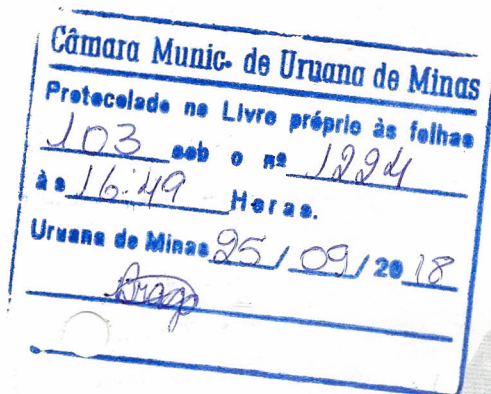 Câmara Munic. de Uruana de Minas
Protocolado no Livro próprio às folhas
103 sob o nº 1224
às 16:49 Horas.
Uruana de Minas 25/09/2018